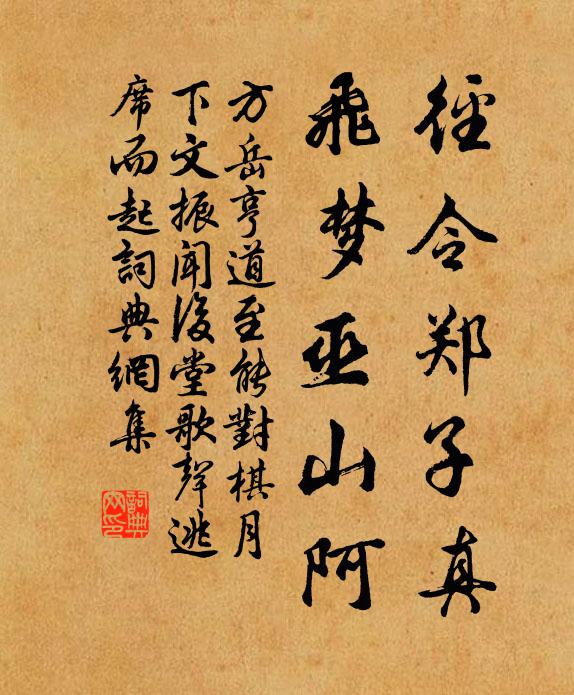 径令郑子真
飛梦巫山阿
方岳亨道至能對棋月
下文振闻後堂歌聲逃
席而起詞典網集
詞典網印